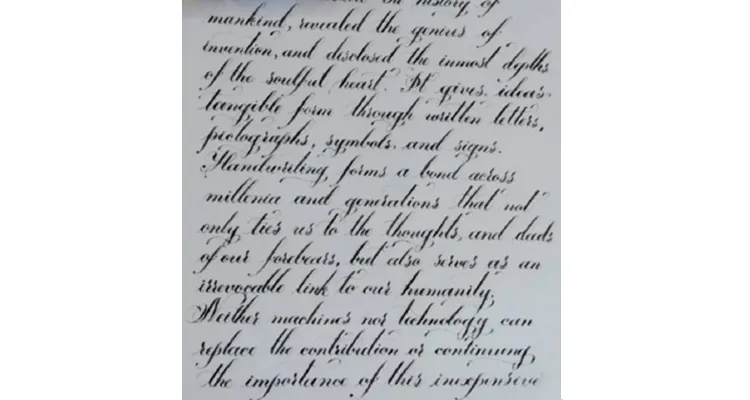 the history of
mankind, revealed the genius of
invention, and disclosed the inmost depths
of the soulful heart. It gives ideas
tangible form through written letters,
pictographs, symbols, and signs.
Handwriting forms a bond across
millenia and generations that not
only ties us to the thoughts and deeds
of our forebears, but also serves as an
irrevocable link to our humanity.
Neither machines nor technology can
replace the contribution or continuing
the importance of this inexpensive